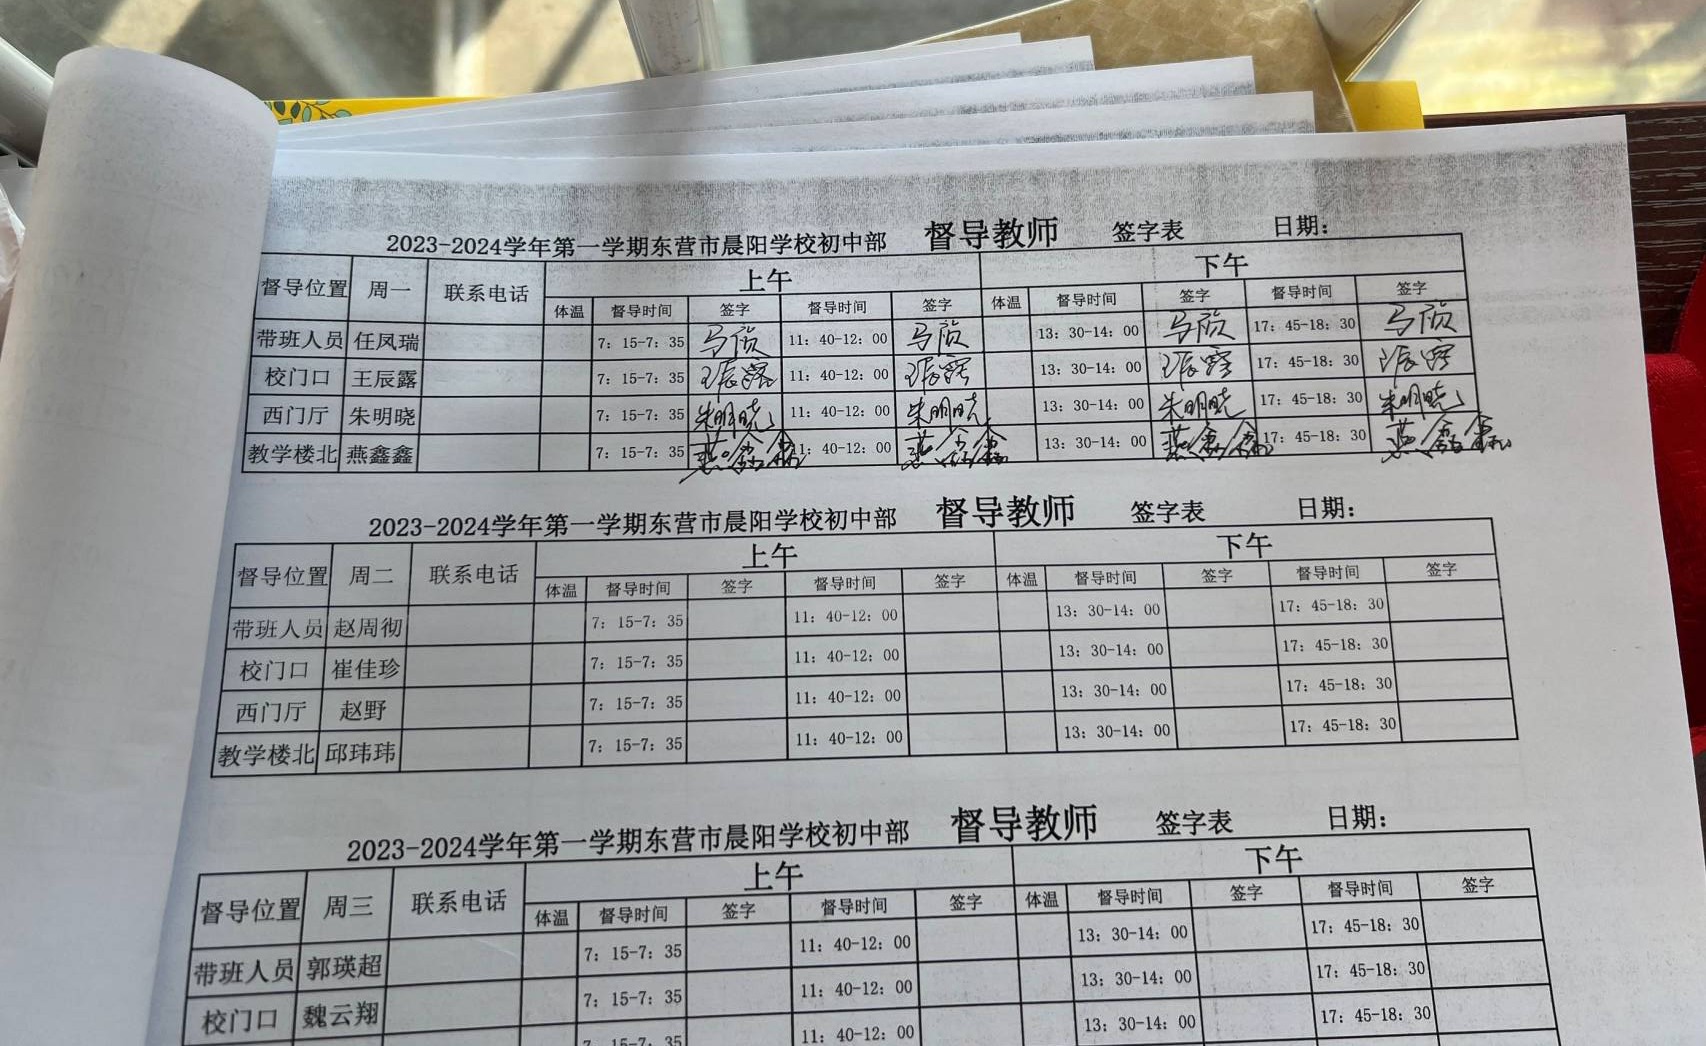 2023-2024学年第一学期东营市晨阳学校初中部 督导教师 签字表 日期:
督导位置 周一 联系电话 上午 下午
体温 督导时间 签字 督导时间 签字 体温 督导时间 签字 督导时间 签字
带班人员 任凤瑞 7: 15-7: 35 马欣 11: 40-12: 00 马欣 13: 30-14: 00 马欣 17: 45-18: 30 马欣
校门口 王辰露 7: 15-7: 35 王辰露 11: 40-12: 00 王辰露 13: 30-14: 00 王辰露 17: 45-18: 30 王辰露
西门厅 朱明晓 7: 15-7: 35 朱明晓 11: 40-12: 00 朱明晓 13: 30-14: 00 朱明晓 17: 45-18: 30 朱明晓
教学楼北 燕鑫鑫 7: 15-7: 35 燕鑫鑫 11: 40-12: 00 燕鑫鑫 13: 30-14: 00 燕鑫鑫 17: 45-18: 30 燕鑫鑫
2023-2024学年第一学期东营市晨阳学校初中部 督导教师 签字表 日期:
督导位置 周二 联系电话 上午 下午
体温 督导时间 签字 督导时间 签字 体温 督导时间 签字 督导时间 签字
带班人员 赵周彻 7: 15-7: 35 11: 40-12: 00 13: 30-14: 00 17: 45-18: 30
校门口 崔佳珍 7: 15-7: 35 11: 40-12: 00 13: 30-14: 00 17: 45-18: 30
西门厅 赵野 7: 15-7: 35 11: 40-12: 00 13: 30-14: 00 17: 45-18: 30
教学楼北 邱玮玮 7: 15-7: 35 11: 40-12: 00 13: 30-14: 00 17: 45-18: 30
2023-2024学年第一学期东营市晨阳学校初中部 督导教师 签字表 日期:
督导位置 周三 联系电话 上午 下午
体温 督导时间 签字 督导时间 签字 体温 督导时间 签字 督导时间 签字
带班人员 郭瑛超 7: 15-7: 35 11: 40-12: 00 13: 30-14: 00 17: 45-18: 30
校门口 魏云翔 7: 15-7: 35 11: 40-12: 00 13: 30-14: 00 17: 45-18: 30
7: 15-7: 35 11: 40-12: 00 13: 30-14: 00 17: 45-18: 30